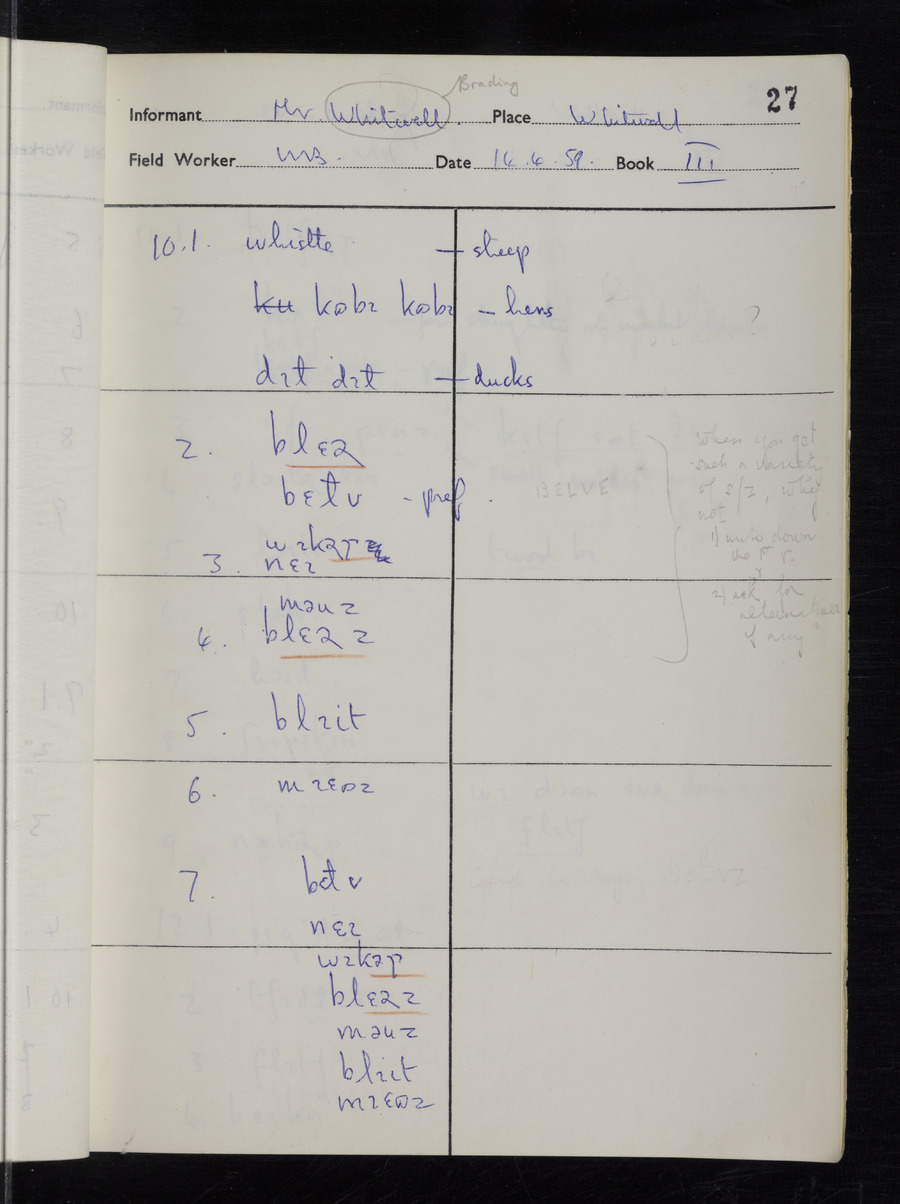 Brading
27
Informant Mr. Whitwell. Place Whitwell
Field Worker WB. Date 14.4.59. Book III
10.1. whistle — sheep
ku kɒbɪ kɒbɪ — hens ?
dɪt dɪt — ducks
2. blɛə
bɛtv - pref. BELVE
When you get
such a variety
of s/z, why
not
1) note down
the
2) ask for
alternatives
if any
3. wɪkəp
nɛɪ
məuz
4. blɛəz
5. blɪit
6. mɪɛɒz
7. bɛtv
nɛɪ
wɪkəp
blɛəz
məuz
blɪit
mɪɛɒz